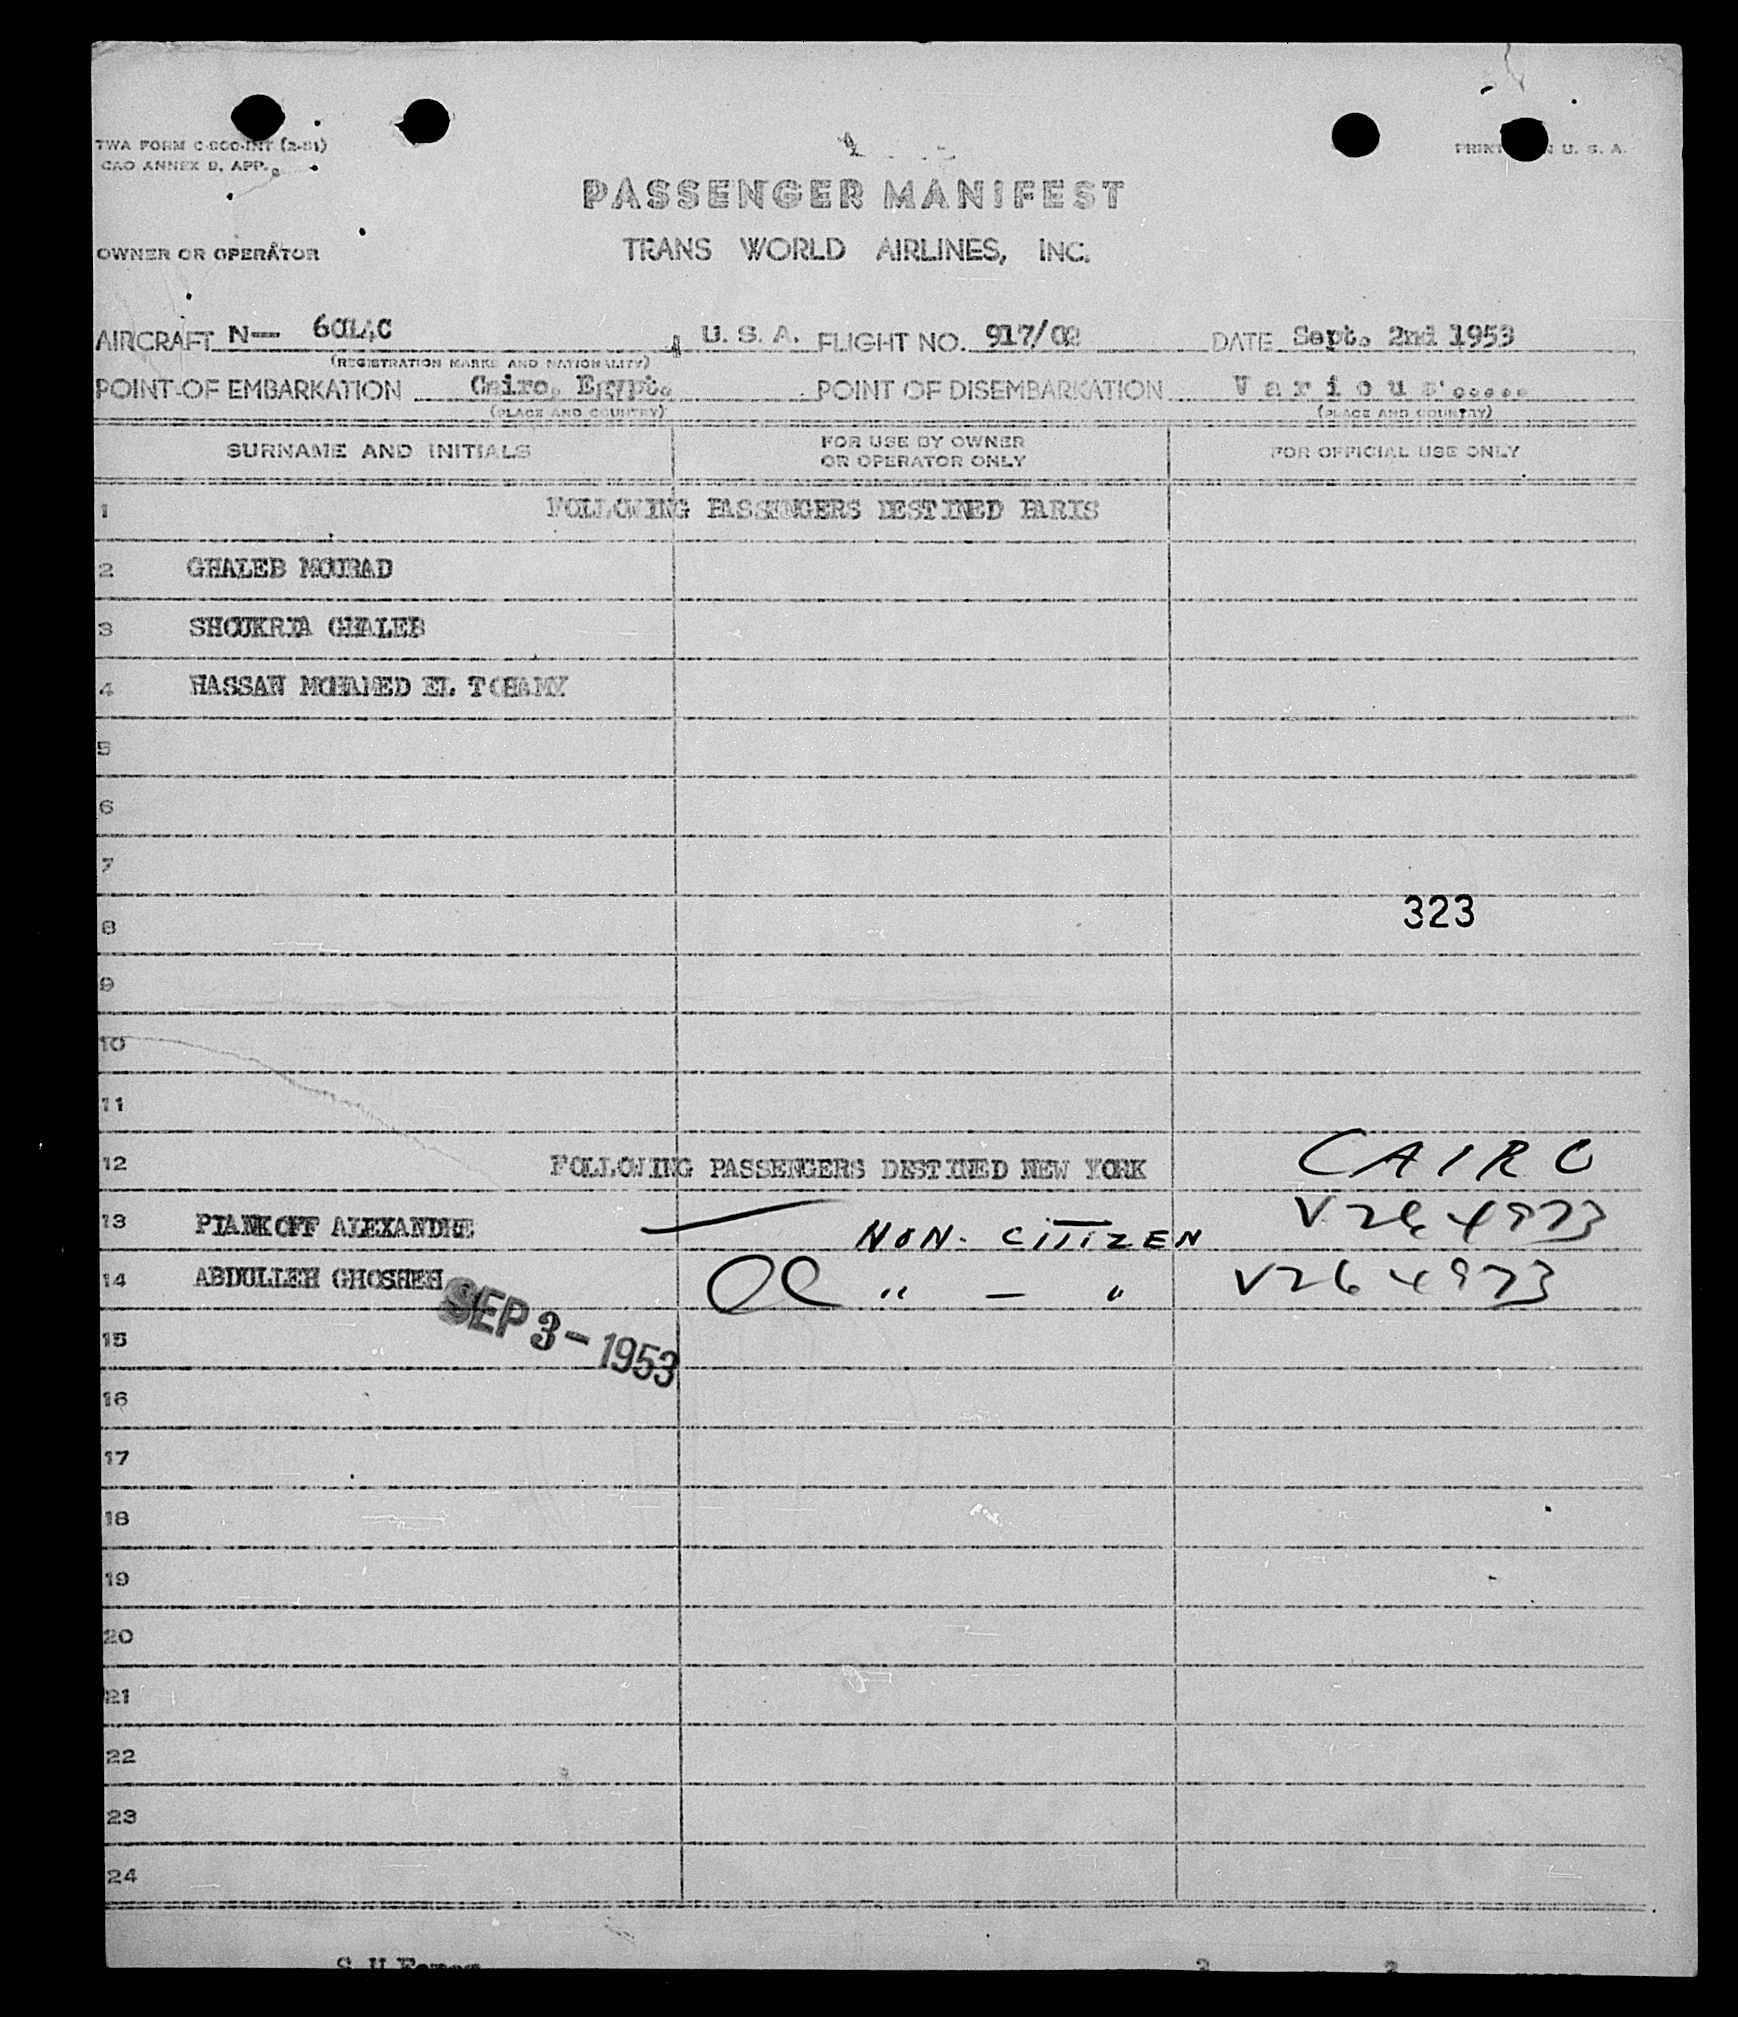 TWA FORM C-800-INT (2-51)
CAO ANNEX 9, APP.
PRINT N U. S. A.
PASSENGER MANIFEST
OWNER OR OPERATOR TRANS WORLD AIRLINES, INC.
AIRCRAFT N— 6014C U. S. A. FLIGHT NO. 917/02 DATE Sept. 2nd 1953
(REGISTRATION MARKS AND NATIONALITY)
POINT OF EMBARKATION Cairo, Egypt. POINT OF DISEMBARKATION Various.....
(PLACE AND COUNTRY) (PLACE AND COUNTRY)
SURNAME AND INITIALS FOR USE BY OWNER OR OPERATOR ONLY FOR OFFICIAL USE ONLY
1 FOLLOWING PASSENGERS DESTINED PARIS
2 GHALEB MOURAD
3 SHOUKRIA GHALEB
4 HASSAN MOHAMED EL TOHAMY
5
6
7
8 323
9
10
11
12 FOLLOWING PASSENGERS DESTINED NEW YORK CAIRO
13 PIANKOFF ALEXANDRE NON-CITIZEN V264973
14 ABDULLEH GHOSHEH " — " V264973
SEP 3-1953
15
16
17
18
19
20
21
22
23
24